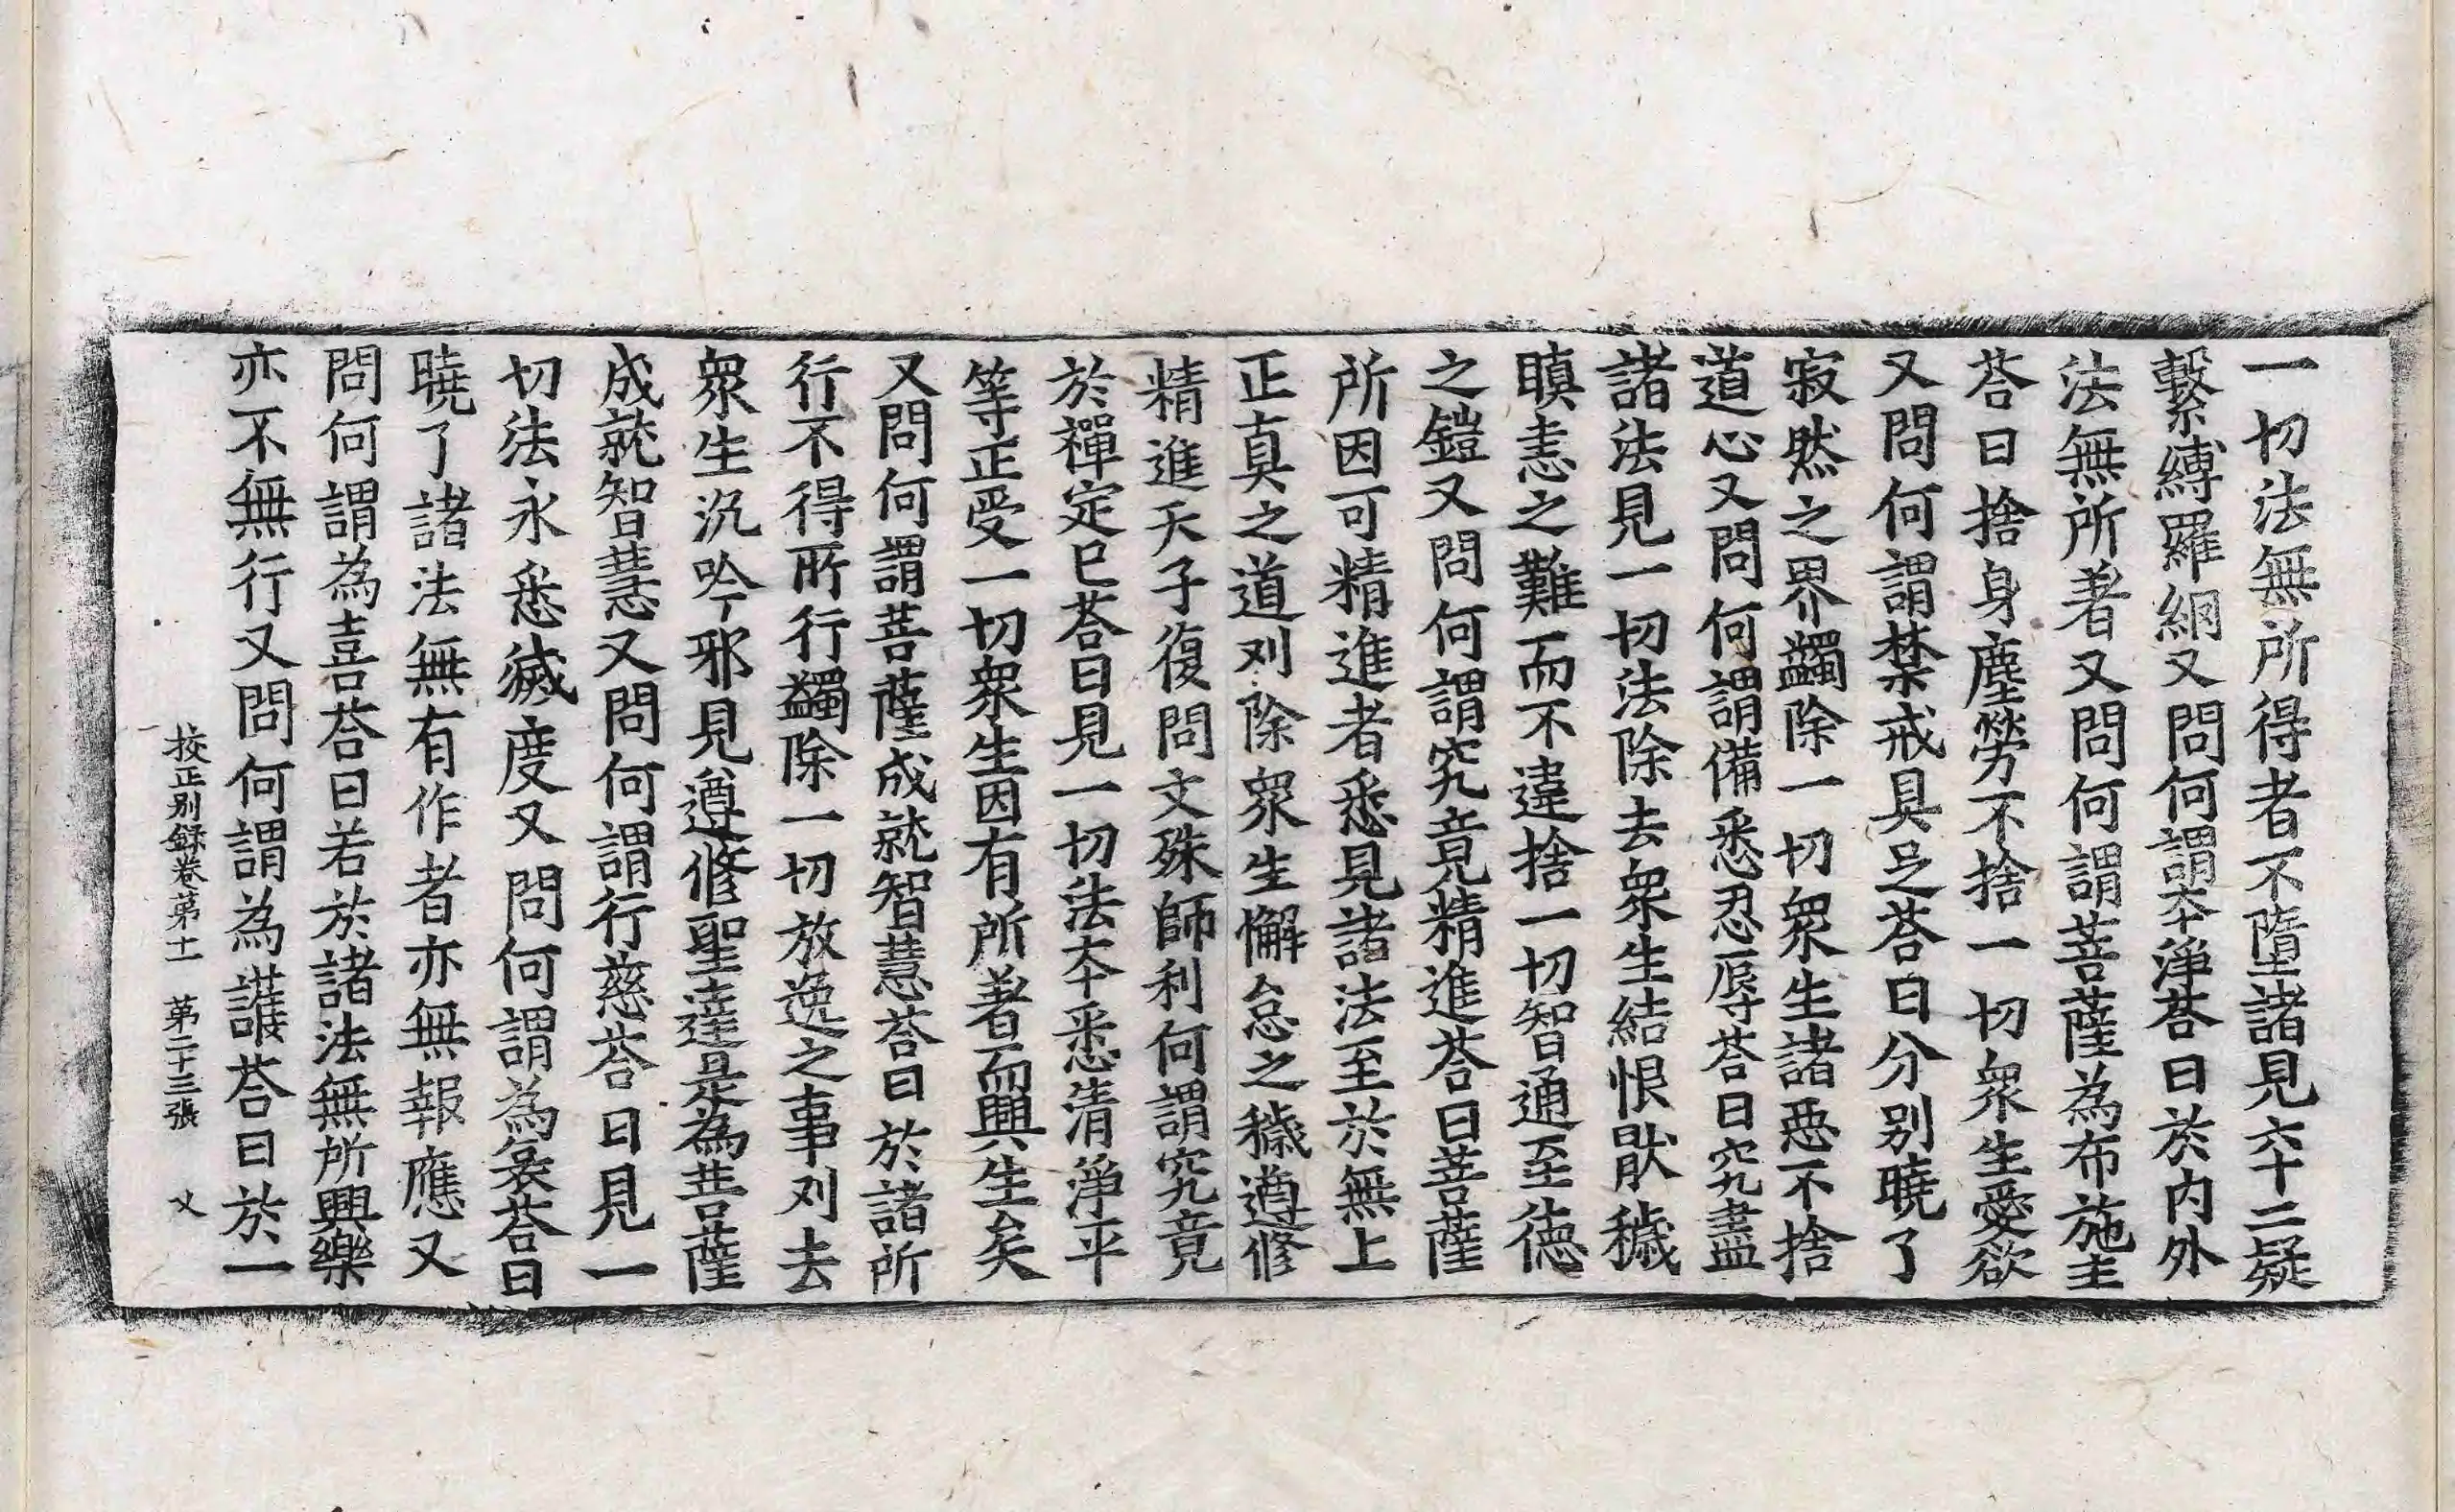 一切法無所得者不墮諸見六十二疑
繫縛羅網又問何謂本淨荅曰於内外
法無所著又問何謂菩薩為布施主
荅曰捨身塵勞不捨一切衆生愛欲
又問何謂禁戒具足荅曰分别曉了
寂然之界蠲除一切衆生諸惡不捨
道心又問何謂備悉忍辱荅曰究盡
諸法見一切法除去衆生結恨猒穢
瞋恚之難而不違捨一切智通至德
之鎧又問何謂究竟精進荅曰菩薩
所因可精進者悉見諸法至於無上
正真之道刈除衆生懈怠之穢遵修
精進天子復問文殊師利何謂究竟
於禪定已荅曰見一切法本悉清淨平
等正受一切衆生因有所著而興生矣
又問何謂菩薩成就智慧荅曰於諸所
行不得所行蠲除一切放逸之事刈去
衆生沉吟邪見遵修聖達是為菩薩
成就智慧又問何謂行慈荅曰見一
切法永悉滅度又問何謂為哀荅曰
曉了諸法無有作者亦無報應又
問何謂為喜荅曰若於諸法無所興樂
亦不無行又問何謂為護荅曰於一
挍正别録卷第十一 第二十三張 乂